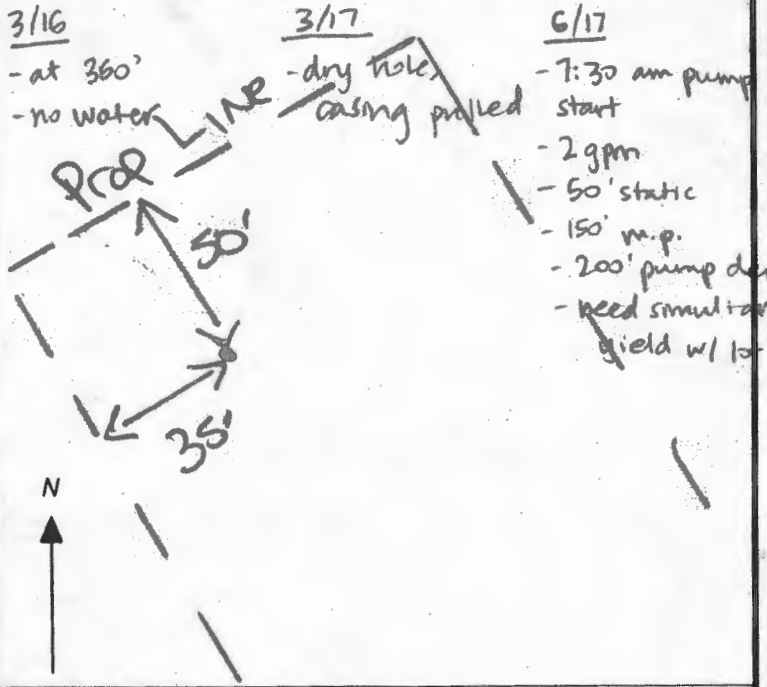 3/16
- at 360'
- no water
3/17
- dry hole,
casing pulled
6/17
- 7:30 am pump
start
- 2 gpm
- 50' static
- 150' m.p.
- 200' pump
- need
yield w/
Prop LINE
50'
35'
N